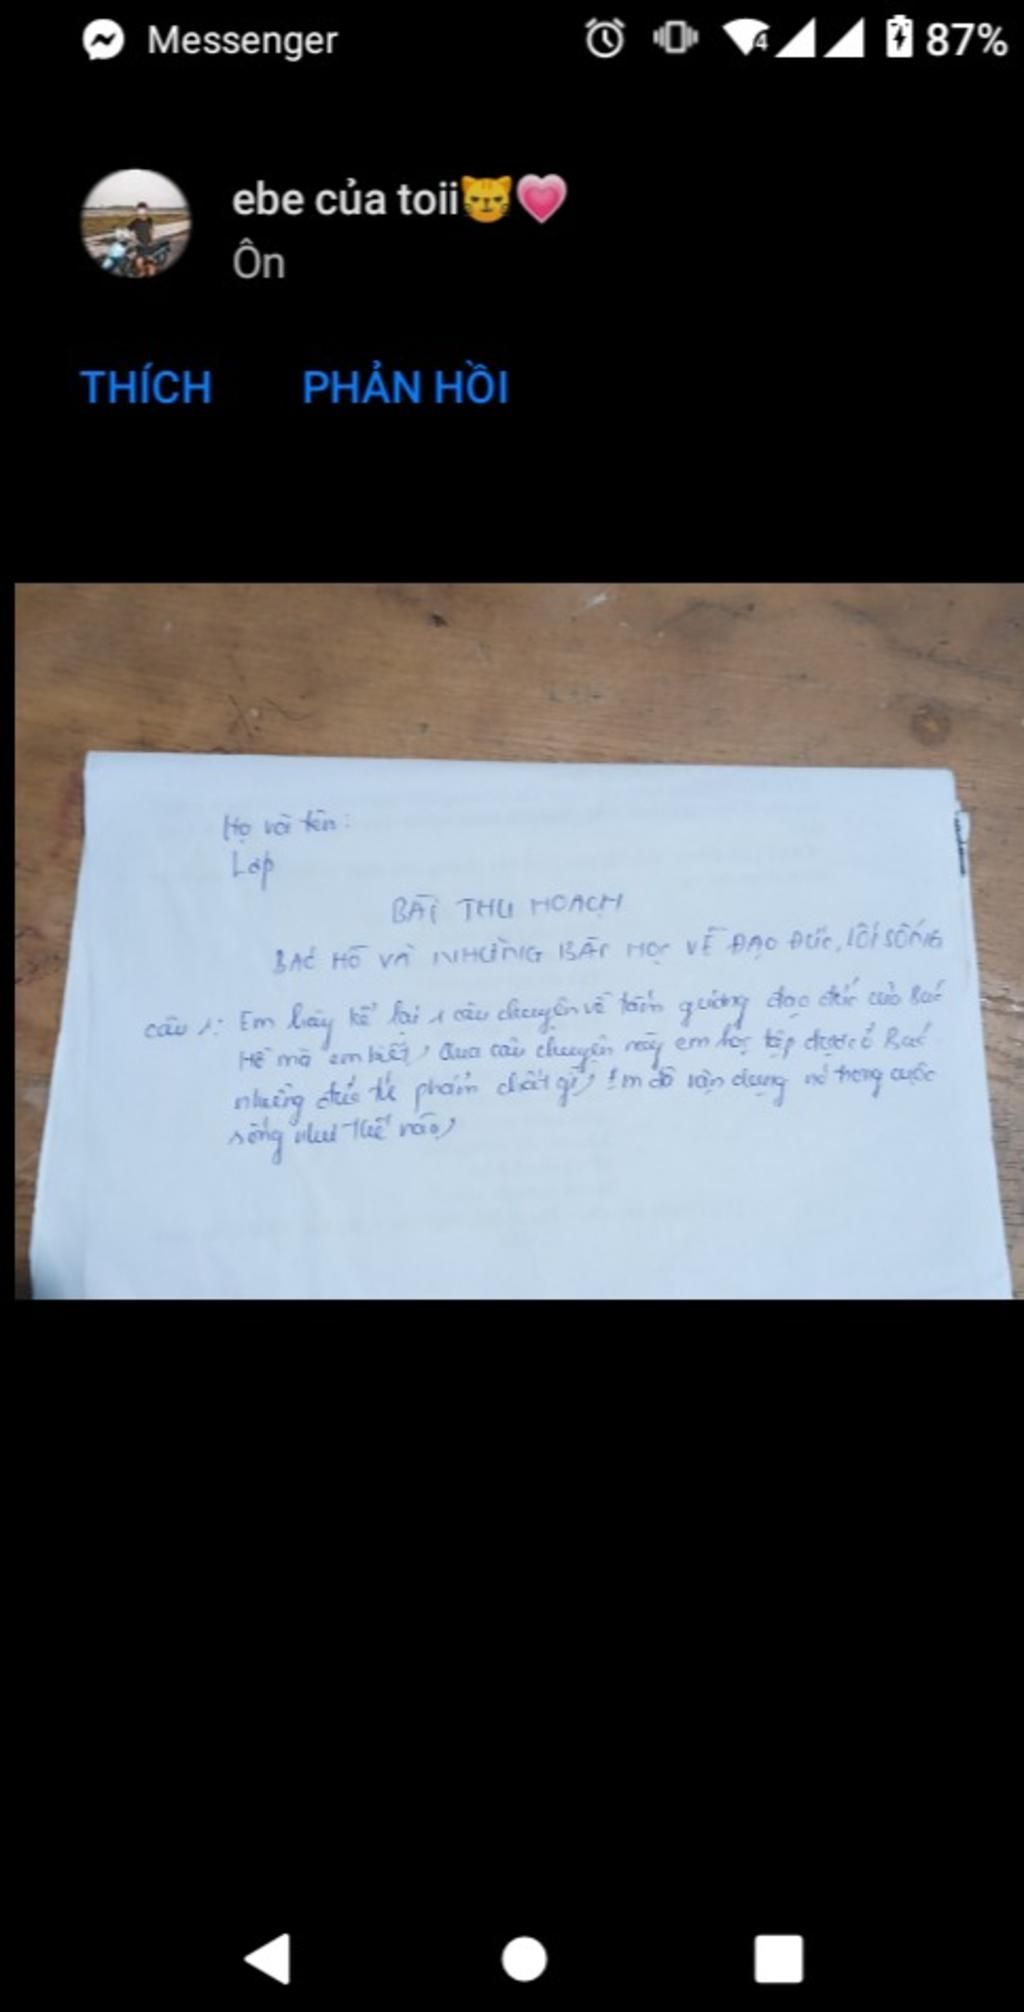 Messenger
87%
ebe của toii😾💗
Ôn
THÍCH PHẢN HỒI
Họ và tên:
Lớp
BÀI THU HOẠCH
BÁC HỒ VÀ NHỮNG BÀI HỌC VỀ ĐẠO ĐỨC, LỐI SỐNG
câu 1: Em hãy kể lại 1 câu chuyện về tấm gương đạo đức của Bác
Hồ mà em biết, Qua câu chuyện này em học tập được ở Bác
những đức tí phẩm chất gì, Em đã vận dụng nó trong cuộc
sống như thế nào,